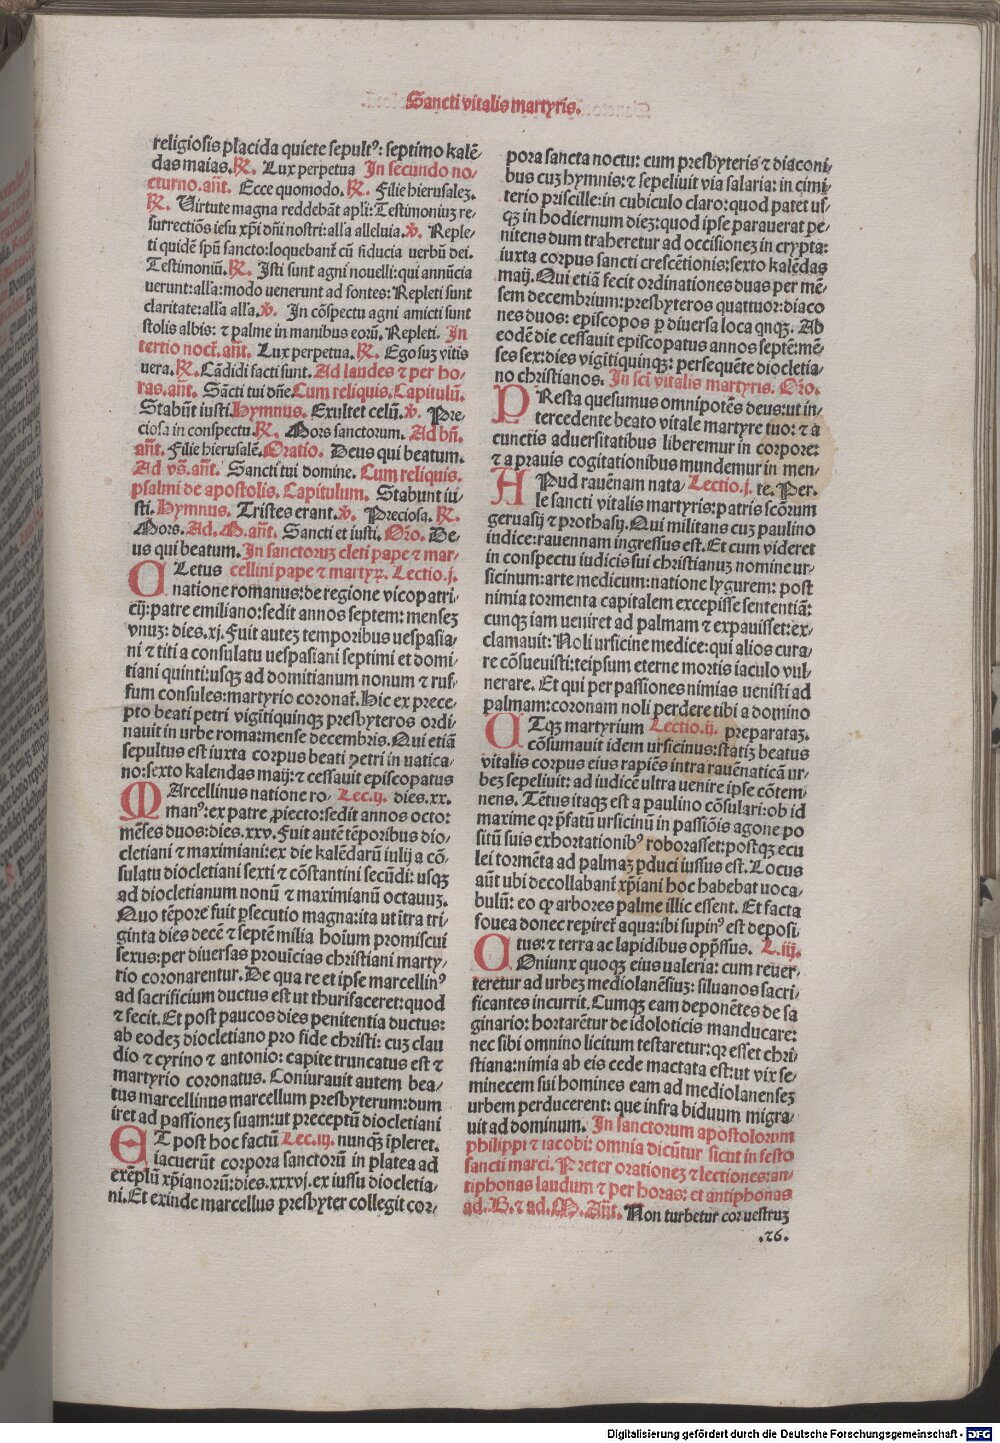 Sancti vitalis martyris.
religiosis placida quiete sepultꝰ: septimo kalē-
das maias. ℟. Lux perpetua In secundo no-
cturno. añt. Ecce quomodo. ℟. Filie hierusalez.
℟. Virtute magna reddebāt apli: Testimoniuz re-
surrectiōis iesu xp̄i dn̄i nostri: alľa alleluia. ℣. Reple-
ti quidē spū sancto: loquebant̄ cū fiducia verbū dei.
Testimoniū. ℟. Isti sunt agni nouelli: qui annūcia
uerunt: alľa: modo uenerunt ad fontes: Repleti sunt
claritate: alľa alľa. ℣. In cōspectu agni amicti sunt
stolis albis: ⁊ palme in manibus eorū. Repleti. In
tertio noct̄. añt. Lux perpetua. ℟. Ego suz vitis
uera. ℟. Cādidi facti sunt. Ad laudes ⁊ per ho-
ras. añt. Sācti tui dn̄e. Cum reliquis. Capitulū.
Stabūt iusti. Hymnus. Exultet celū. ℣. Pre-
ciosa in conspectu. ℟. Mors sanctorum. Ad bn̄.
añt. Filie hierusalē. Oratio. Deus qui beatum.
Ad vs̄. añt. Sancti tui domine. Cum reliquis.
psalmi de apostolis. Capitulum. Stabunt iu-
sti. Hymnus. Tristes erant. ℣. Preciosa. ℟.
Mors. Ad. M. añt. Sancti et iusti. Oro. De-
us qui beatum. In sanctoruz cleti pape ⁊ mar-
CLetus cellini pape ⁊ martyꝝ. Lectio. j.
natione romanus: de regione vico patri-
cij: patre emiliano: sedit annos septem: mensez
vnuz: dies. xj. Fuit autez temporibus uespasia-
ni ⁊ titi a consulatu uespasiani septimi et domi-
tiani quinti: usqꝫ ad domitianum nonum ⁊ ruf-
fum consules: martyrio coronat̄. Hic ex prece-
pto beati petri vigītiquinqꝫ presbyteros ordi-
nauit in urbe roma: mense decembris. Qui etiā
sepultus est iuxta corpus beati petri in uatica-
no: sexto kalendas maij: ⁊ cessauit episcopatus
MArcellinus natione ro- Lec. ij. dies. xx.
manꝰ: ex patre ꝓiecto: sedit annos octo:
mēses duos: dies. xxv. Fuit autē tēporibus dio-
cletiani ⁊ maximiani: ex die kalēdarū iulij a cō-
sulatu diocletiani sexti ⁊ cōstantini secūdi: usqꝫ
ad diocletianum nonū ⁊ maximianū octauuz.
Quo tēpore fuit ꝑsecutio magna: ita ut ītra tri-
ginta dies decē ⁊ septē milia hoīum promiscui
sexus: per diuersas prouīcias christiani marty-
rio coronarentur. De qua re et ipse marcellinꝰ
ad sacrificium ductus est ut thurifaceret: quod
⁊ fecit. Et post paucos dies penitentia ductus:
ab eodez diocletiano pro fide christi: cuz clau
dio ⁊ cyrino ⁊ antonio: capite truncatus est ⁊
martyrio coronatus. Coniurauit autem bea-
tus marcellinus marcellum presbyterum: dum
iret ad passionez suam: ut preceptū diocletiani
ET post hoc factū Lec. iij. nunqꝫ īpleret.
iacuerūt corpora sanctorū in platea ad
exēplū xp̄ianorū: dies. xxxvj. ex iussu diocletia-
ni. Et exinde marcellus presbyter collegit cor-
pora sancta noctu: cum presbyteris ⁊ diaconi-
bus cuz hymnis: ⁊ sepeliuit via salaria: in cimi-
terio priscille: in cubiculo claro: quod patet us-
qꝫ in hodiernum diez: quod ipse parauerat pe-
nitens dum traheretur ad occisionez in crypta:
iuxta corpus sancti crescētionis: sexto kalēdas
maij. Qui etiā fecit ordinationes duas per mē-
sem decembrium: presbyteros quattuor: diaco
nes duos: episcopos ꝑ diuersa loca qnqꝫ. Ab
eodē die cessauit episcopatus annos septē: mē-
ses sex: dies vigītiquinqꝫ: persequēte diocletia-
no christianos. In sc̄i vitalis martyris. Oro.
PResta quesumus omnipotēs deus: ut in-
tercedente beato vitale martyre tuo: ⁊ a
cunctis aduersitatibus liberemur in corpore:
⁊ a prauis cogitationibus mundemur in men-
APud rauēnam nata- Lectio. j. te. Per.
le sancti vitalis martyris: patris scōrum
geruasij ⁊ prothasij. Qui militans cuz paulino
iudice: rauennam ingressus est. Et cum videret
in conspectu iudicis sui christianuz nomine ur-
sicinum: arte medicum: natione lygurem: post
nimia tormenta capitalem excepisse sententiā:
cunqꝫ iam ueniret ad palmam ⁊ expauisset: ex-
clamauit: Noli ursicine medice: qui alios cura-
re cōsueuisti: teipsum eterne mortis iaculo vul-
nerare. Et qui per passiones nimias uenisti ad
palmam: coronam noli perdere tibi a domino
UTqꝫ martyrium Lectio. ij. preparataz.
cōsumauit idem ursicinus: statiz beatus
vitalis corpus eius rapiēs intra rauēnaticā ur-
bez sepeliuit: ad iudicē ultra uenire ipse cōtem-
nens. Tētus itaqꝫ est a paulino cōsulari: ob id
maxime qꝛ p̄fatū ursicinū in passiōis agone po
sitū suis exhortationibꝰ roborasset: postqꝫ ecu
lei tormēta ad palmaz ꝑduci iussus est. Locus
aūt ubi decollabant̄ xp̄iani hoc habebat uoca-
bulū: eo ꝙ arbores palme illic essent. Et facta
fouea donec repiret̄ aqua: ibi supinꝰ est deposi
CUtus: ⁊ terra ac lapidibus opp̄ssus. L. iij.
Oniunx quoqꝫ eius ualeria: cum reuer-
teretur ad urbez mediolanēsiuz: siluanos sacri-
ficantes incurrit. Cumqꝫ eam deponētes de sa
ginario: hortarētur de idoloticis manducare:
nec sibi omnino licitum testaretur: qꝛ esset chri-
stiana: nimia ab eis cede mactata est: ut vix se-
minecem sui homines eam ad mediolanensez
urbem perducerent: que infra biduum migra-
uit ad dominum. In sanctorum apostolorum
philippi ⁊ iacobi: omnia dicūtur sicut in festo
sancti marci. Preter orationez ⁊ lectiones: an-
tiphonas laudum ⁊ per horas: et antiphonas
ad. B. ⁊ ad. M. Añt. Non turbetur cor uestruz
.26.
Digitalisierung gefördert durch die Deutsche Forschungsgemeinschaft - DFG